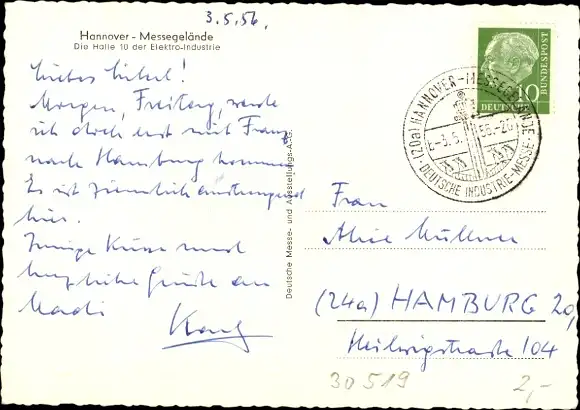 3.5.56.
Hannover - Messegelände
Die Halle 10 der Elektro-Industrie
Liebes
Morgen, Freitag, werde
ich doch erst mit Franz
nach Hamburg kommen
Es ist ziemlich anstrengend
hier.
Innige Küsse und
herzliche Grüße an
Karl
Deutsche Messe- und Ausstellungs-A.G.
10
DEUTSCHE BUNDESPOST
(20a) HANNOVER-MESSEGELÄNDE
-3.5.56-20
DEUTSCHE INDUSTRIE-MESSE
Frau
Alice Müllner
(24a) HAMBURG 20,
Heilwigstrasse 104
30519
2,-